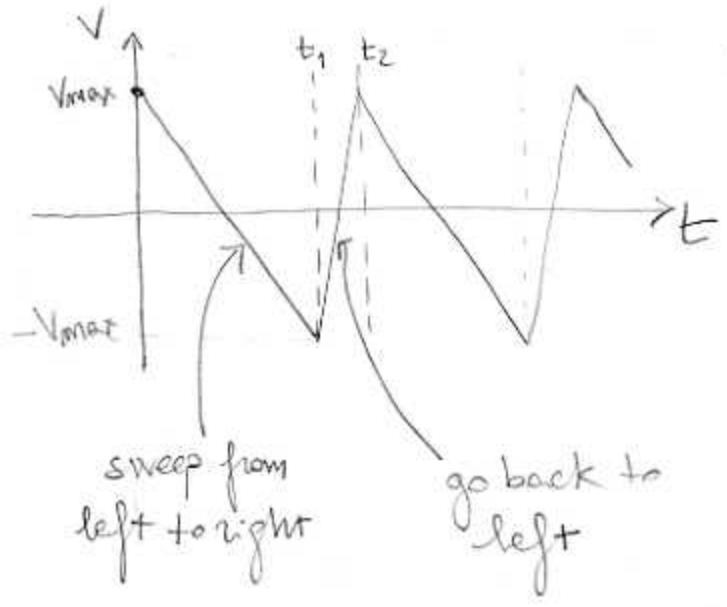 V
t1 t2
Vmax
t
-Vmax
sweep from
left to right
go back to
left